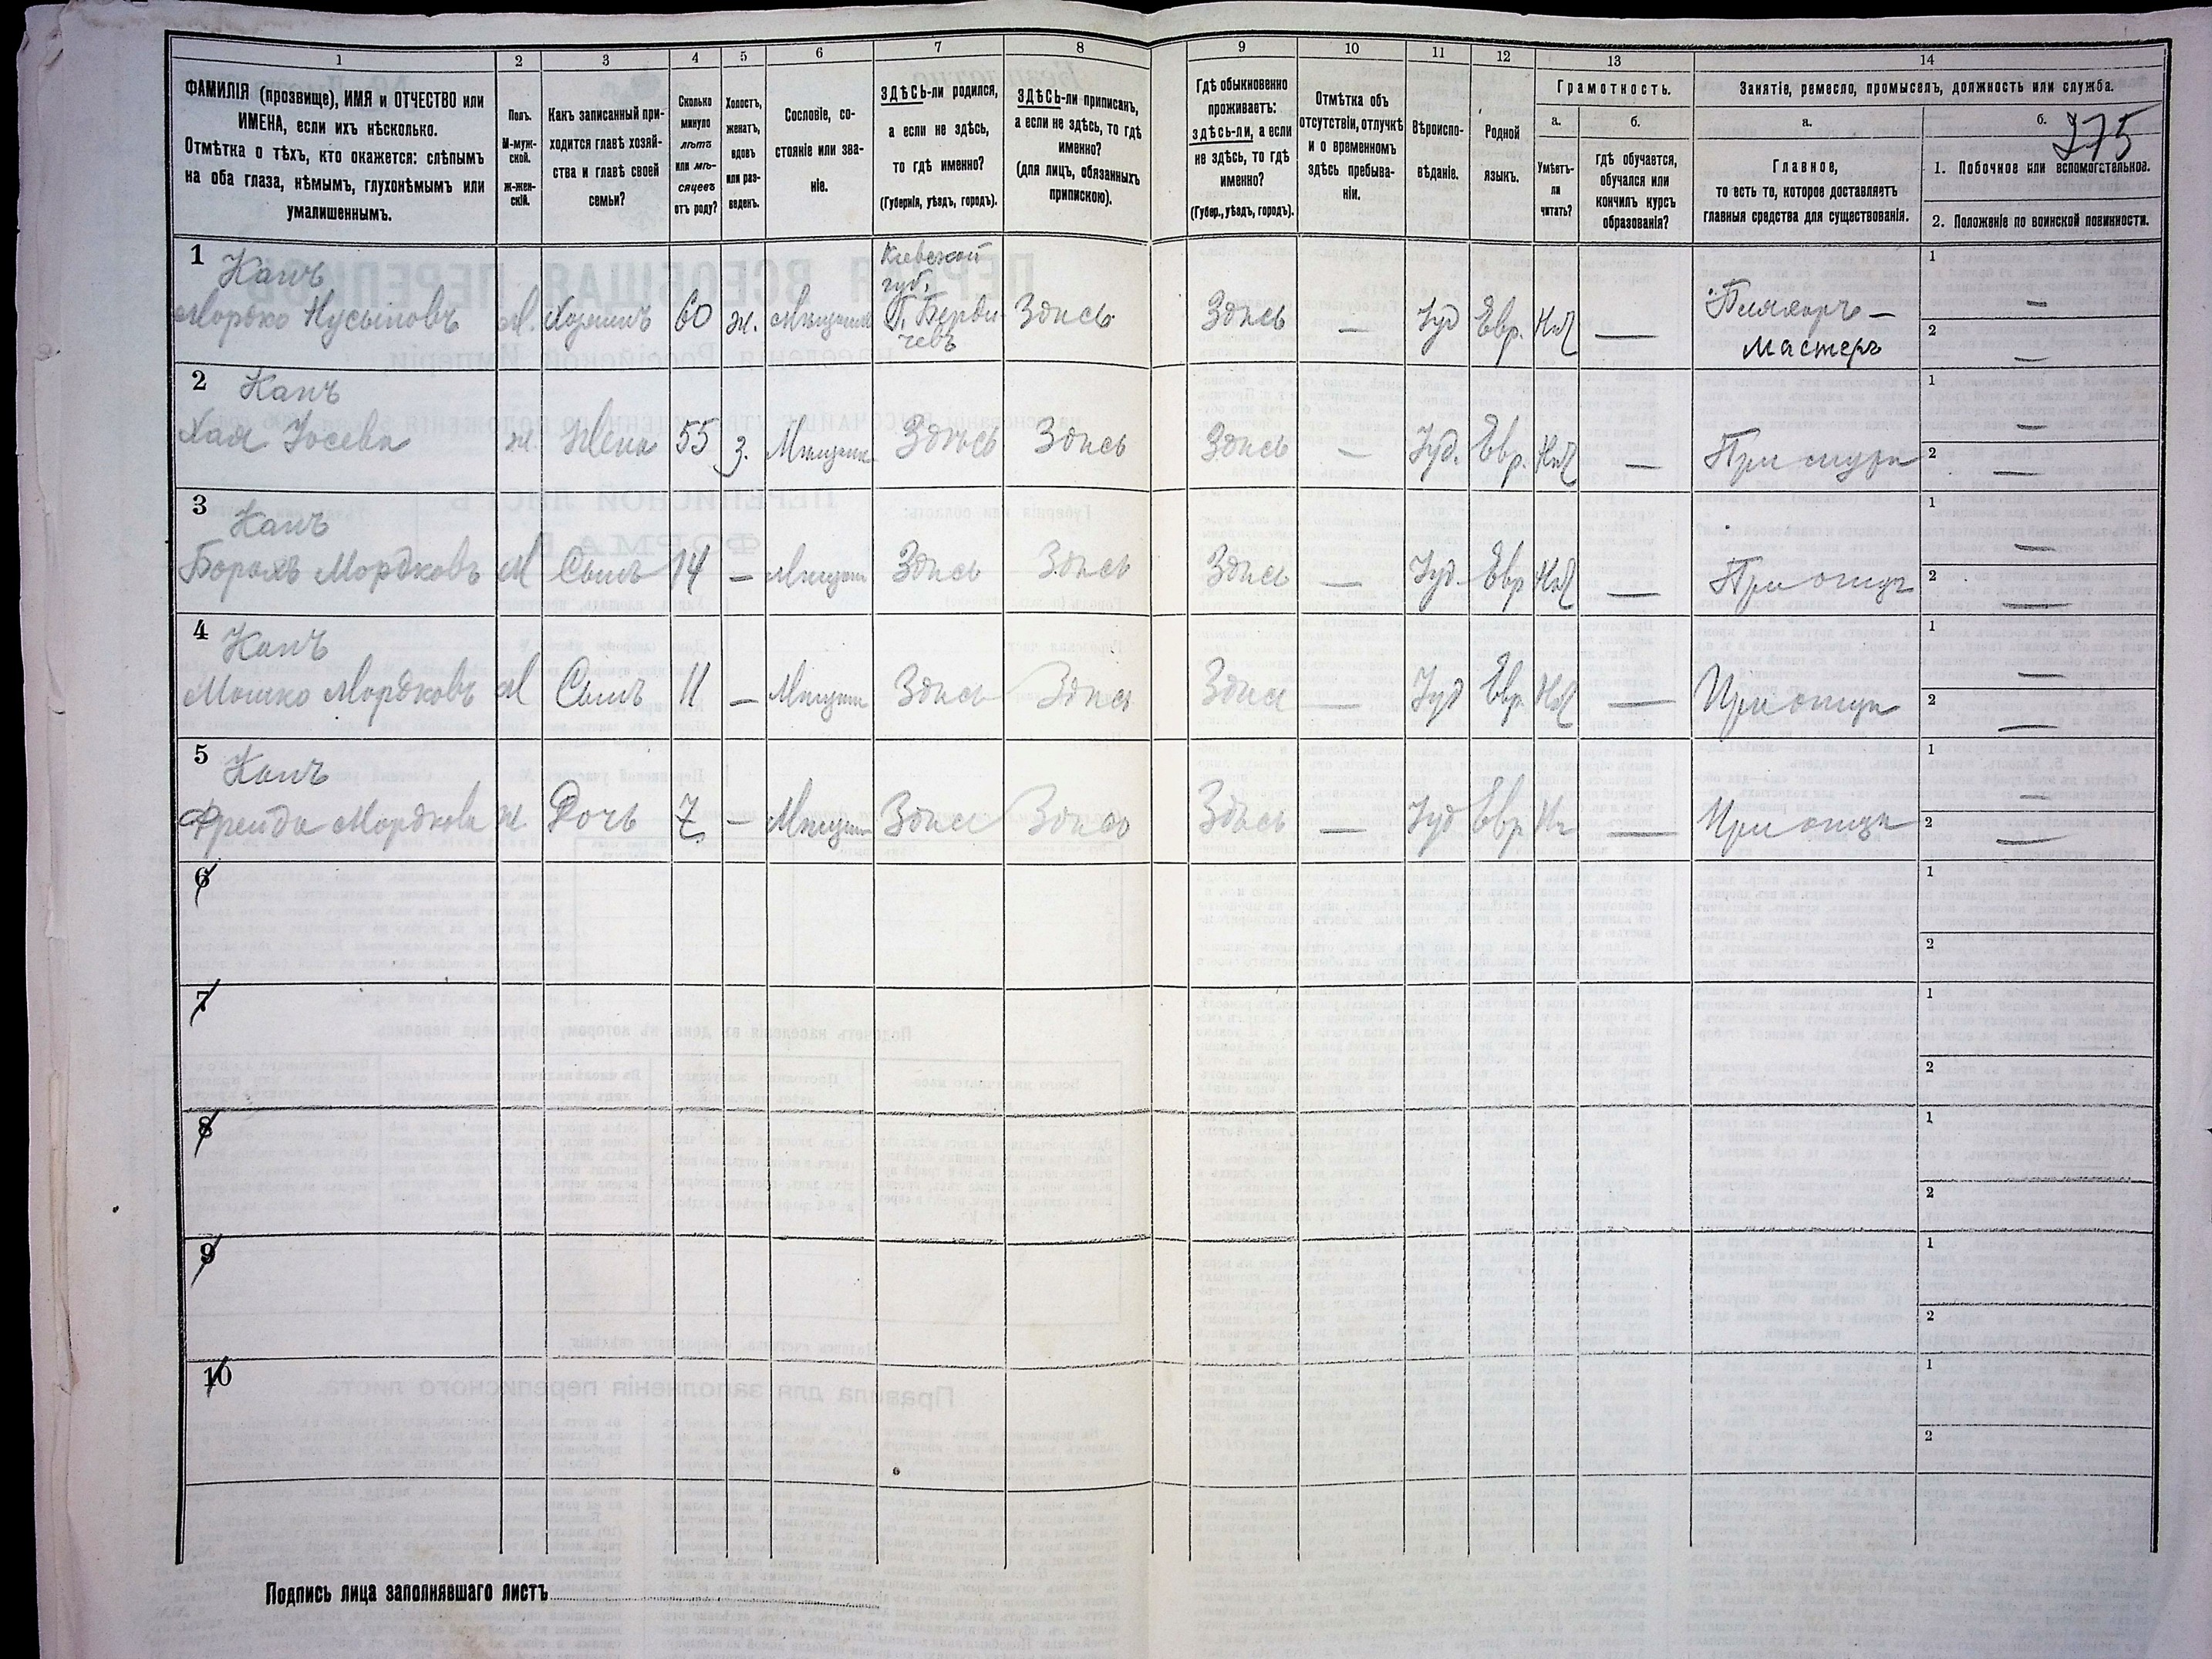 1 2 3 4 5 6 7 8 9 10 11 12 13 14
ФАМИЛІЯ (прозвище), ИМЯ и ОТЧЕСТВО или
ИМЕНА, если ихъ нѣсколько.
Отмѣтка о тѣхъ, кто окажется: слѣпымъ
на оба глаза, нѣмымъ, глухонѣмымъ или
умалишеннымъ.
Полъ.
М-муж-
ской.
ж-жен-
скій.
Какъ записанный при-
ходится главѣ хозяй-
ства и главѣ своей
семьи?
Сколько
минуло
лѣтъ
или мѣ-
сяцевъ
отъ роду?
Холостъ,
женатъ,
вдовъ
или раз-
веденъ.
Сословіе, со-
стояніе или зва-
ніе.
ЗДѢСЬ-ли родился,
а если не здѣсь,
то гдѣ именно?
(Губернія, уѣздъ, городъ).
ЗДѢСЬ-ли приписанъ,
а если не здѣсь, то гдѣ
именно?
(для лицъ, обязанныхъ
припискою).
Гдѣ обыкновенно
проживаетъ:
здѣсь-ли, а если
не здѣсь, то гдѣ
именно?
(Губер., уѣздъ, городъ).
Отмѣтка объ
отсутствіи, отлучкѣ
и о временномъ
здѣсь пребыва-
ніи.
Вѣроиспо-
вѣданіе.
Родной
языкъ.
Грамотность.
а.
Умѣетъ-
ли
читать?
б.
гдѣ обучается,
обучался или
кончилъ курсъ
образованія?
Занятіе, ремесло, промыселъ, должность или служба.
а.
Главное,
то есть то, которое доставляетъ
главныя средства для существованія.
б.
275
1. Побочное или вспомогательное.
2. Положеніе по воинской повинности.
1 Канъ Кіевской
губ. 1
Мордко Нусыновъ М. Хозяинъ 60 ж. Мѣщанин Г. Берди Здѣсь Здѣсь — Іуд Евр. Нѣт — —
чевъ Мастеръ 2 —
2 Канъ 1 —
Хая Іосева ж. Жена 55 З. Мѣщанк Здѣсь Здѣсь Здѣсь — Іуд. Евр. Нѣт — При мужѣ 2 —
3 Канъ 1 —
Борохъ Мордковъ М Сынъ 14 — Мѣщан Здѣсь Здѣсь Здѣсь — Іуд. Евр Нѣт — При отцѣ 2 —
4 Канъ 1 —
Мошко Мордковъ М Сынъ 11 — Мѣщан Здѣсь Здѣсь Здѣсь — Іуд Евр Нѣт — При отцѣ 2 —
5 Канъ 1 —
Фрейда Мордкова ж. Дочь 7 — Мѣщан Здѣсь Здѣсь Здѣсь — Іуд Евр Нѣ — При отцѣ 2 —
6 1
2
7 1
2
8 1
2
9 1
2
10 1
2
Подпись лица заполнявшаго листъ